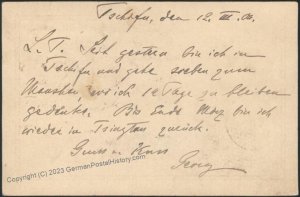 Tschifu, den 12. III. 00.
L. T. Seit gestern bin ich in
Tschifu und gehe soeben zum
wo ich 10 Tage zu bleiben
gedenke. Bis Ende März bin ich
wieder in Tsingtau zurück.
Gruss u. Kuss
Georg
Copyright (C) 2023 GermanPostalHistory.com